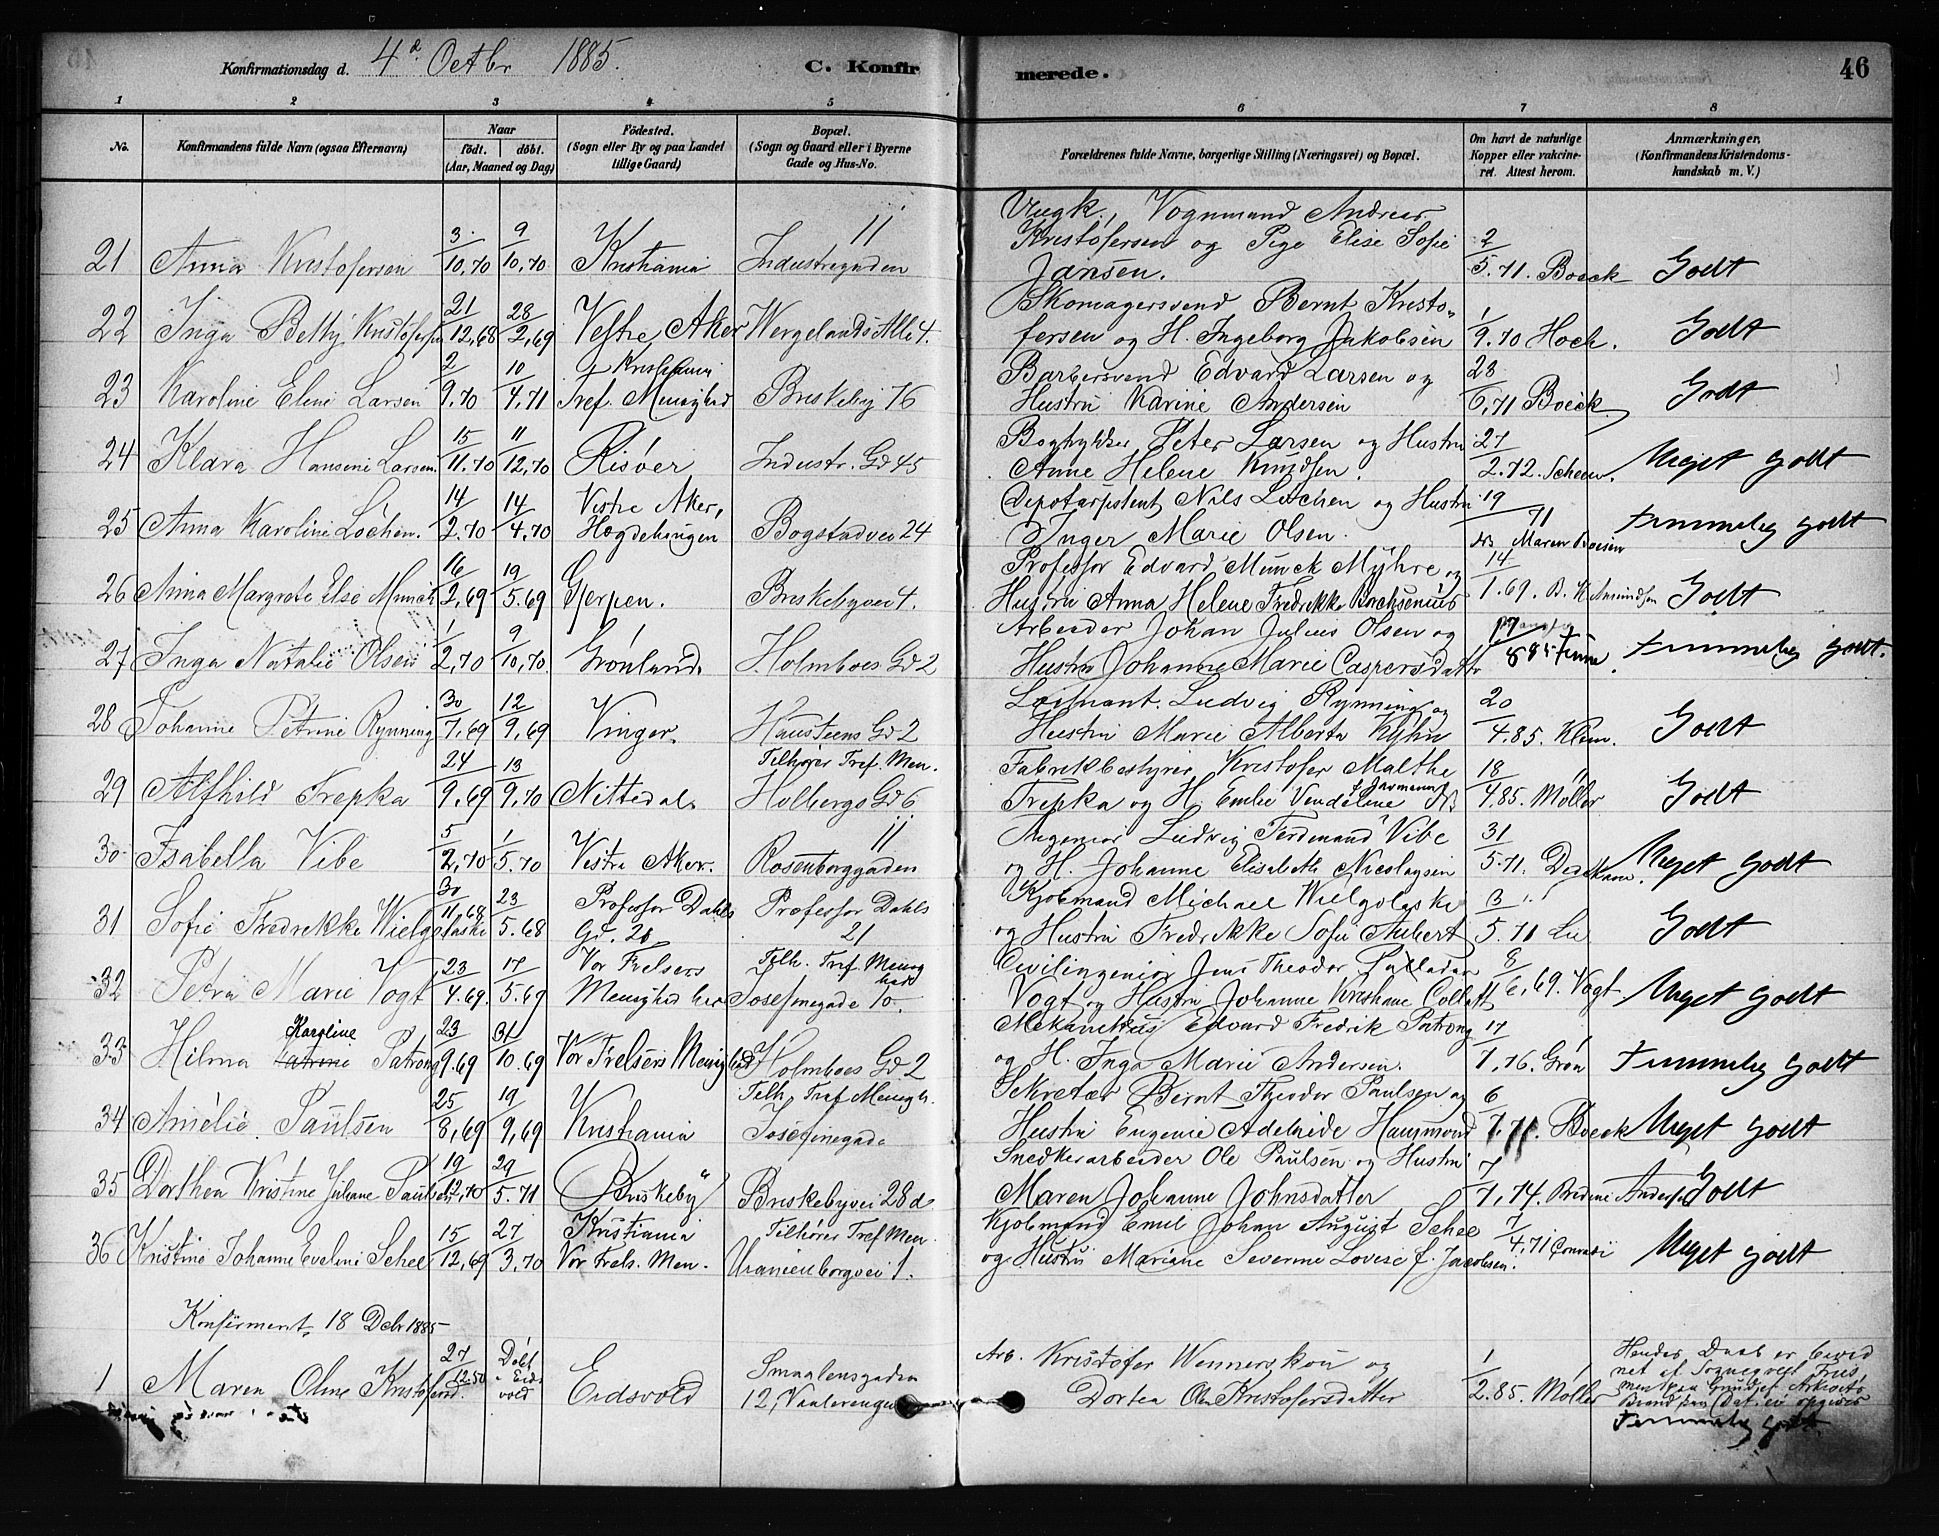 Konfirmationsdag d. 4de Octbr 1885. C. Konfirmerede. 46
1 2 3 4 5 6 7 8
No. Konfirmandens fulde Navn (ogsaa Efternavn) Naar födt. döbt. (Aar, Maaned og Dag) Födested. (Sogn eller By og paa Landet tillige Gaard) Bopæl. (Sogn og Gaard eller i Byerne Gade og Hus-No. Forældrenes fulde Navne, borgerlige Stilling (Næringsvei) og Bopæl. Om havt de naturlige Kopper eller vakcineret. Attest herom. Anmærkninger. (Konfirmandens Kristendomskundskab m. V.)
21 Anna Kristofersen 3/10,70 9/10,70 Kristiania Industrigaden 11 Uægk. Vognmand Andreas Kristofersen og Pige Elise Sofie Jansen. 2/5.71. Boeck Godt
22 Inga Betty Kristofersen 21/12,68 28/2,69 Vestre Aker Wergelands Alle 4. Skomagersvend Bernt Kristofersen og H. Ingeborg Jakobsen 1/9.70 Hoch. Godt
23 Karoline Eline Larsen 2/9.70 10/4,71 Kristiania Tref. Menighed Briskeby 76 Barbersvend Edvard Larsen og Hustru Karine Andersen 28/6,71 Boeck Godt
24 Klara Hansine Larsen. 15/11.70 11/12,70 Risöer Industr. Gd 45 Bogtrykker Peter Larsen og Hustru Anne Helene Knudsen. 27/2.72. Meget godt
25 Anna Karoline Löchen. 14/2.70 14/4.70 Vestre Aker, Hægdehaugen Bogstadvei 24 Depotassistent Nils Löchen og Hustru Inger Marie Olsen. 19/71 Maren Boesen temmelig godt
26 Anna Margrete Else Munck 16/2,69 19/5.69 Gjerpen. Briskebyvei 4. Professor Edvard Munck Myhre og Hustru Anna Helene Fredrikke Borchsenius 14/1.69. B. K. Amundsen Godt
27 Inga Natalie Olsen 1/2,70 9/10,70. Grönland. Holmboes Gd 2 Arbeider Johan Julius Olsen og Hustru Johanne Marie Caspersdatter temmelig godt.
28 Johanne Petrine Rynning 30/7,69 12/9,69 Vinger. Hausteens Gd 2 Loitnant. Ludvig Rynning og Hustru Marie Alberta Kyhn 20/4.85. Godt
29 Alfhild Trepka 24/9.69 13/9,70 Nittedal. Tilhører Tref. Men. Holbergs Gd 6 Fabrikbestyrer Kristofer Malthe Trepka og H. Emilie Vendeline 18/4,85. Møller Godt
30 Isabella Vibe 5/2,70 1/5.70 Vestre Aker. Rosenborggaden 11 Ingeniör Ludvig Ferdinand Vibe og H. Johanne Elisabeth Nicolaysen 31/5.71. Dedekam. Meget godt
31 Sofie Fredrikke Wielgolaski 30/11,68 23/5.68 Professor Dahls Gd. 21 Professor Dahls 21 Kjöbmand Michael Wielgolaski og Hustru Fredrikke Sofie Aubert 3/5.71 Lie Godt
32 Petra Marie Vogt 23/4.69. 17/5.69 Vor Frelsers Menighed her Tilh. Tref. Menighed Josefinegade 10. Civilingeniör Jens Theodor Palladan Vogt og Hustru Johanne Kristiane Collett 8/6,69. Vogt Meget godt
33 Hilma Karoline Patrong 23/9.69 31/10.69 Vor Frelsers Menighed Holmboes Gd. 2 Mekanikus Edvard Fredrik Patrong og H. Inga Marie Andersen. 17/7,76. Grön temmelig godt
34 Amélie Paulsen 25/8,69 19/9,69 Kristiania Tilh. Tref Menigh. Josefinegade Sekretær Bernt Theodor Paulsen og Hustru Eugenie Adelaide 6/7.71. Boeck Meget godt
35 Dorthea Kristine Juliane Paulsen 19/12,70 29/5.71 Briskeby Briskebyvei 28 d Snedkerarbeider Ole Paulsen og Hustru Maren Johanne Johnsdatter 7/7,74. Bredine Andersen Godt
36 Kristine Johanne Eveline Schee 15/12,69 27/3,70 Kristiania Vor Frels. Men. Tilhører Tref Men. Uranienborgvei 1. Kjöbmand Emil Johan August Schee og Hustru Mariane Severine Lovise f. Jacobsen. 7/4.71 Conradi Meget godt
Konfirmeret 18 Debr 1885
1 Maren Oline Kristofersd. 27/12.50 Döbt i Eidsvold Eidsvold Smaalensgaden 12, Vaalerengen Arb. Kristofer Wennerskou og Dortea Kristofersdatter 1/2.85. Møller Hendes Daab er bevidnet af temmelig godt.